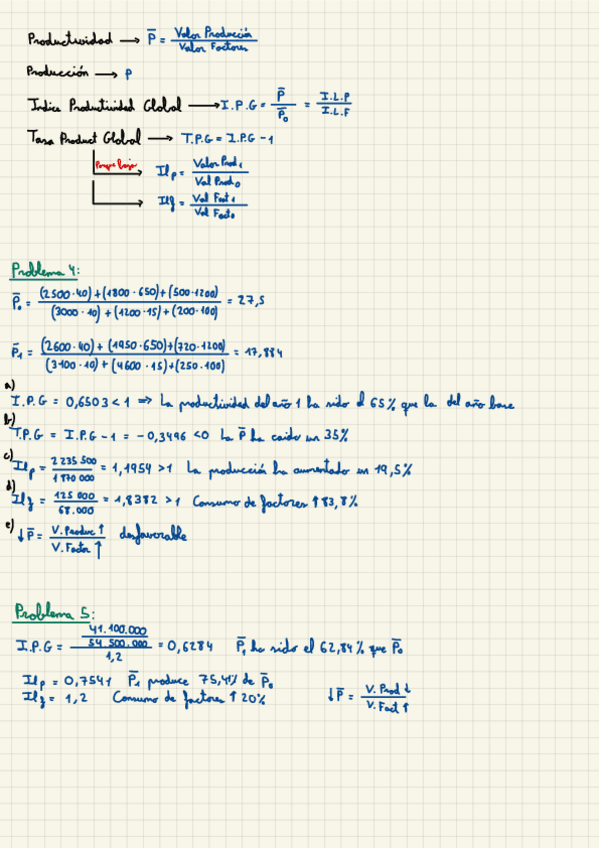 Productividad → P̄ = Valor Producción / Valor Factores
Producción → P
Índice Productividad Global → I.P.G = P̄ / P̄₀ = I.L.P / I.L.F
Tasa Product Global → T.P.G = I.P.G - 1
Ilp = Valor Prod₁ / Val Prod₀
Ilf = Val Fact₁ / Val Fact₀
Problema 4:
P̄₀ = (2500·40)+(1800·650)+(500·1200) / (3000·10)+(1200·15)+(200·100) = 27,5
P̄₁ = (2600·40)+(1950·650)+(720·1200) / (3100·10)+(4600·15)+(250·100) = 17,884
a)
I.P.G = 0,6503 < 1 ⇒ La productividad del año 1 ha sido el 65% que la del año base
b)
T.P.G = I.P.G - 1 = -0,3496 < 0 La P̄ ha caido un 35%
c)
Ilp = 2 235 500 / 1 870 000 = 1,1954 > 1 La producción ha aumentado un 19,5%
d)
Ilf = 125 000 / 68.000 = 1,8382 > 1 Consumo de factores ↑ 83,8%
e)
↓P̄ = V. Produc ↑ / V. Factor ↑ desfavorable
Problema 5:
I.P.G = 41.100.000 / 54.500.000 / 1,2 = 0,6284 P̄₁ ha sido el 62,84% que P̄₀
Ilp = 0,7541 P̄₁ produce 75,41% de P̄₀
Ilf = 1,2 Consumo de factores ↑ 20% ↓P̄ = V. Prod ↓ / V. Fact ↑